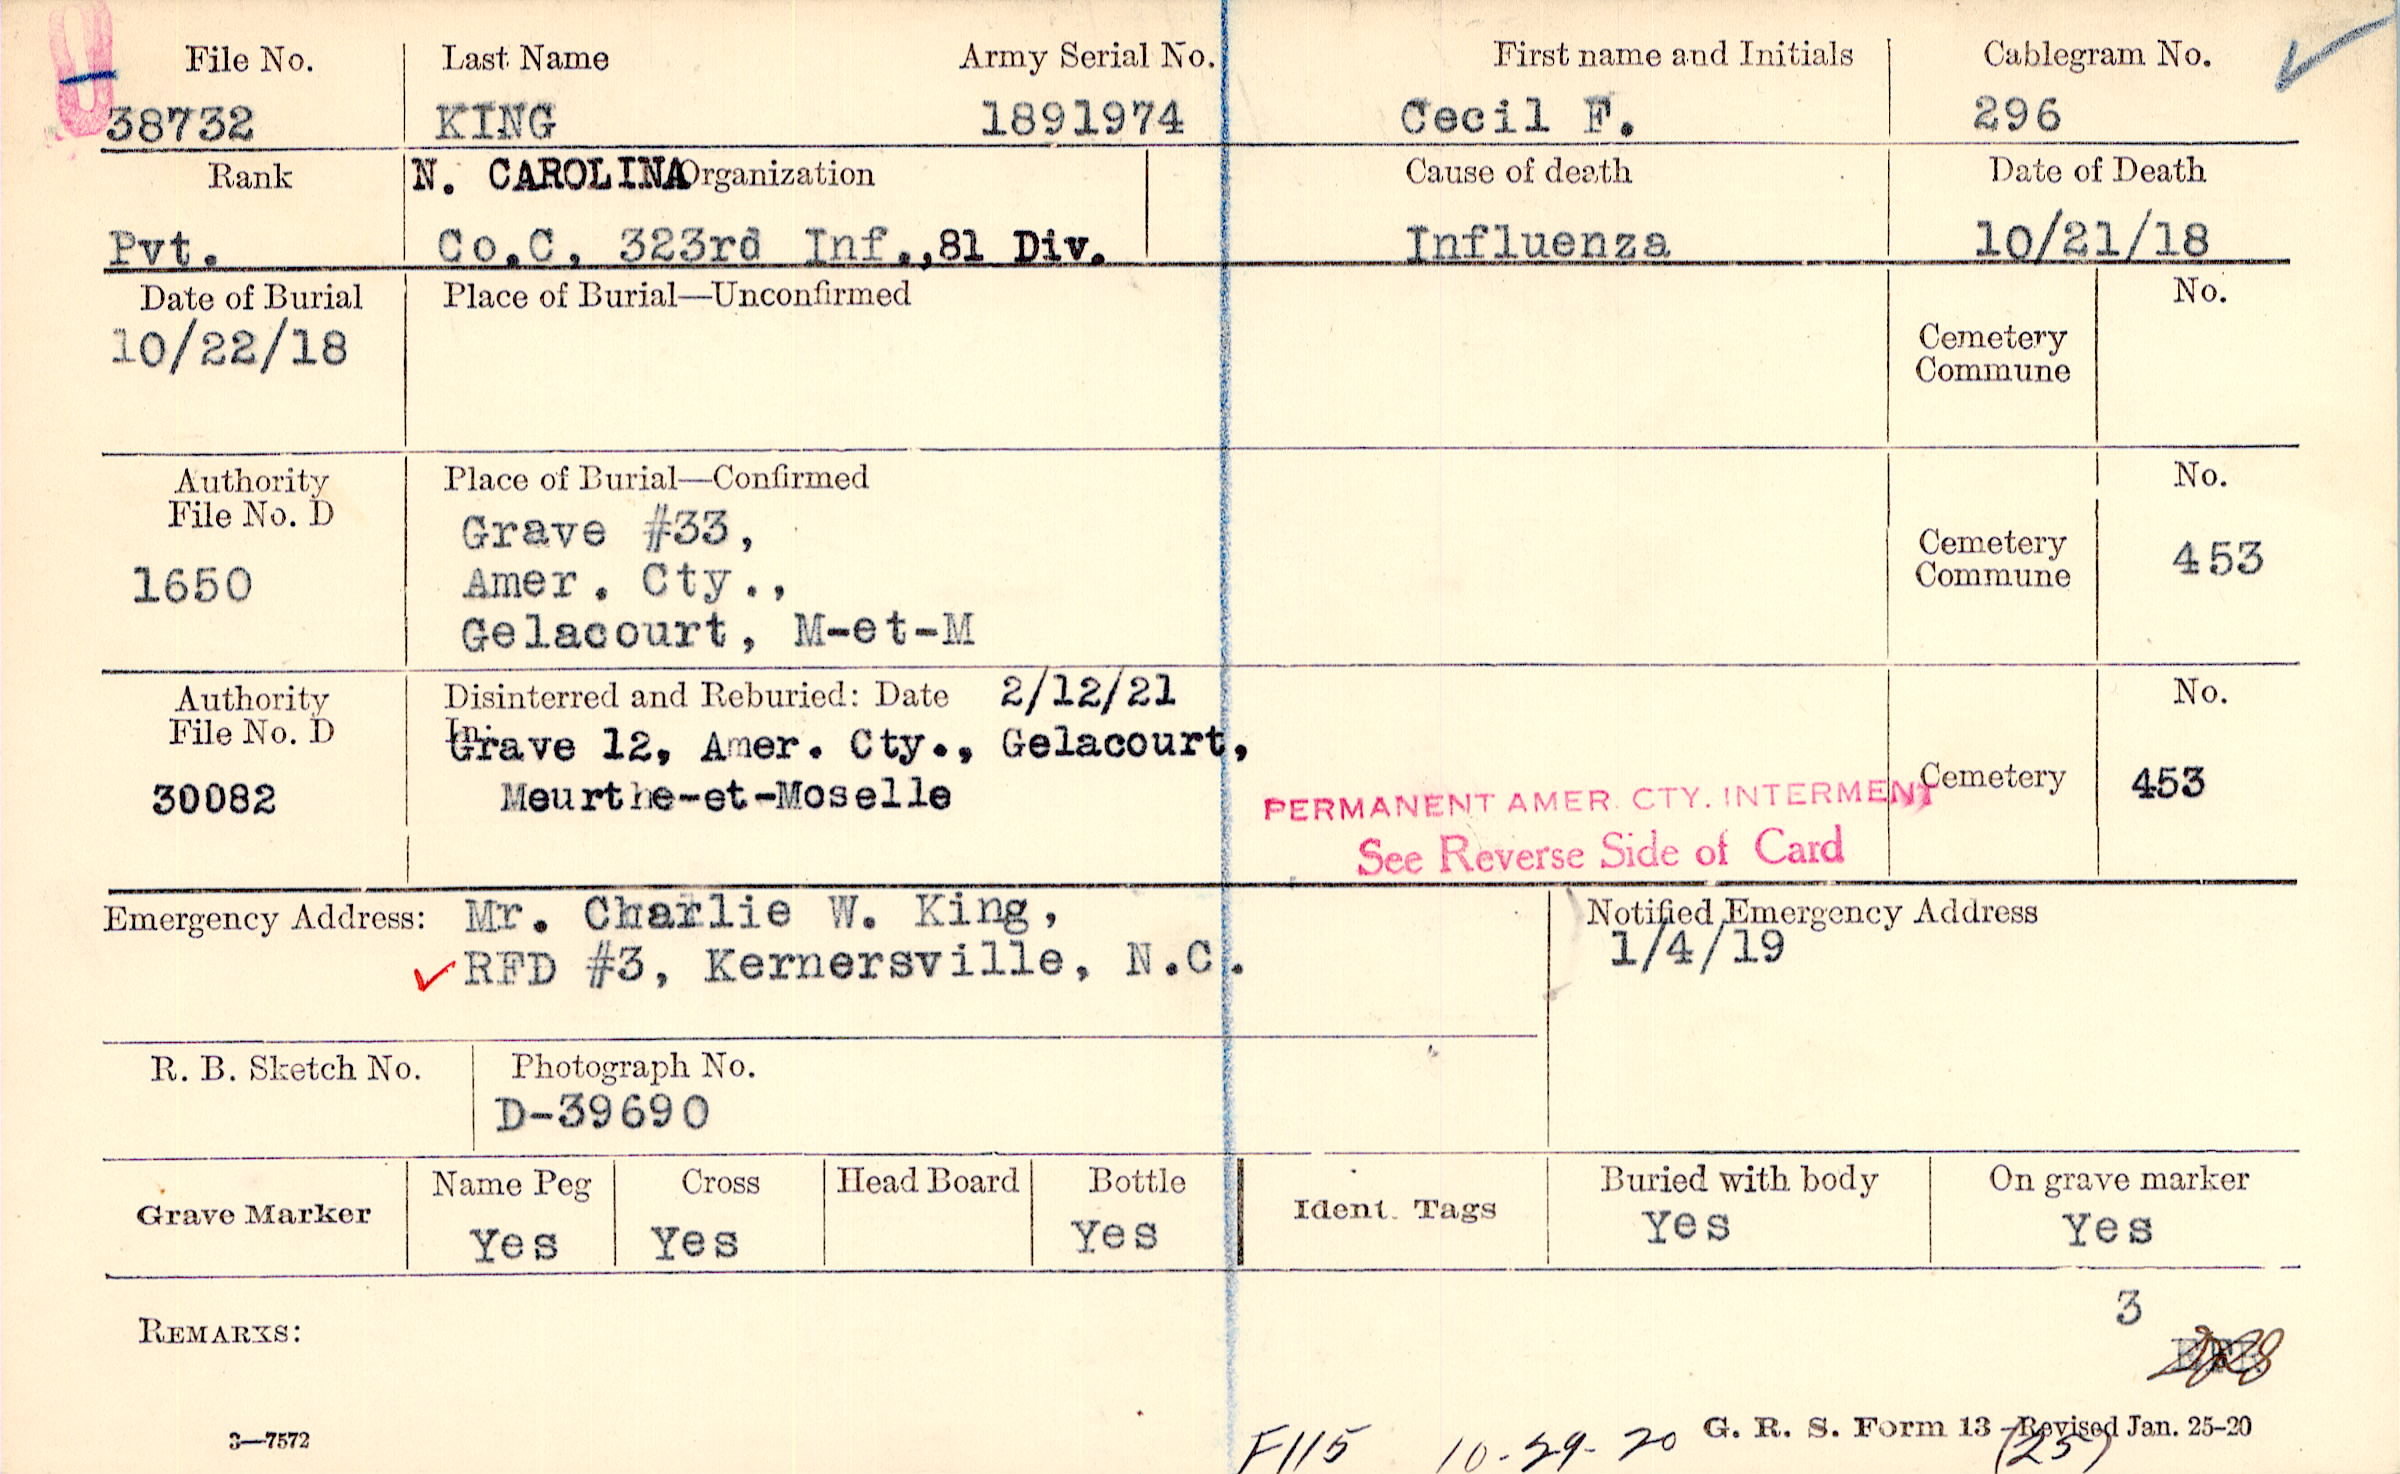 File No. Last Name Army Serial No. First name and Initials Cablegram No.
38732 KING 1891974 Cecil F. 296
Rank N. CAROLINA Organization Cause of death Date of Death
Pvt. Co.C, 323rd Inf.,81 Div. Influenza 10/21/18
Date of Burial Place of Burial—Unconfirmed No.
10/22/18
Cemetery
Commune
Authority Place of Burial—Confirmed No.
File No. D
Grave #33,
1650 Amer. Cty., Cemetery 453
Commune
Gelacourt, M-et-M
Authority Disinterred and Reburied: Date 2/12/21 No.
File No. D In:
Grave 12, Amer. Cty., Gelacourt,
30082 Meurthe-et-Moselle Cemetery 453
PERMANENT AMER. CTY. INTERMENT
See Reverse Side of Card
Emergency Address: Mr. Charlie W. King, Notified Emergency Address
RFD #3, Kernersville, N.C. 1/4/19
R. B. Sketch No. Photograph No.
D-39690
Grave Marker Name Peg Cross Head Board Bottle Ident. Tags Buried with body On grave marker
Yes Yes Yes Yes Yes
3
REMARKS:
3—7572 F115 10-29-20 G. R. S. Form 13—Revised Jan. 25-20
(25)